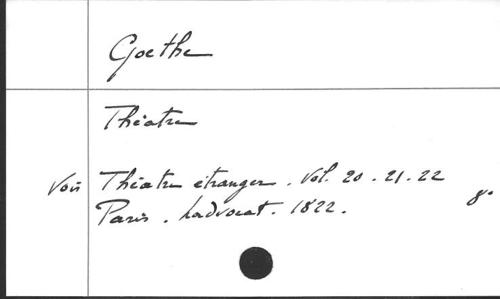 Goethe
Théatre
Voir Théatre étranger. Vol. 20. 21. 22
Paris. Ladvocat. 1822. 8°